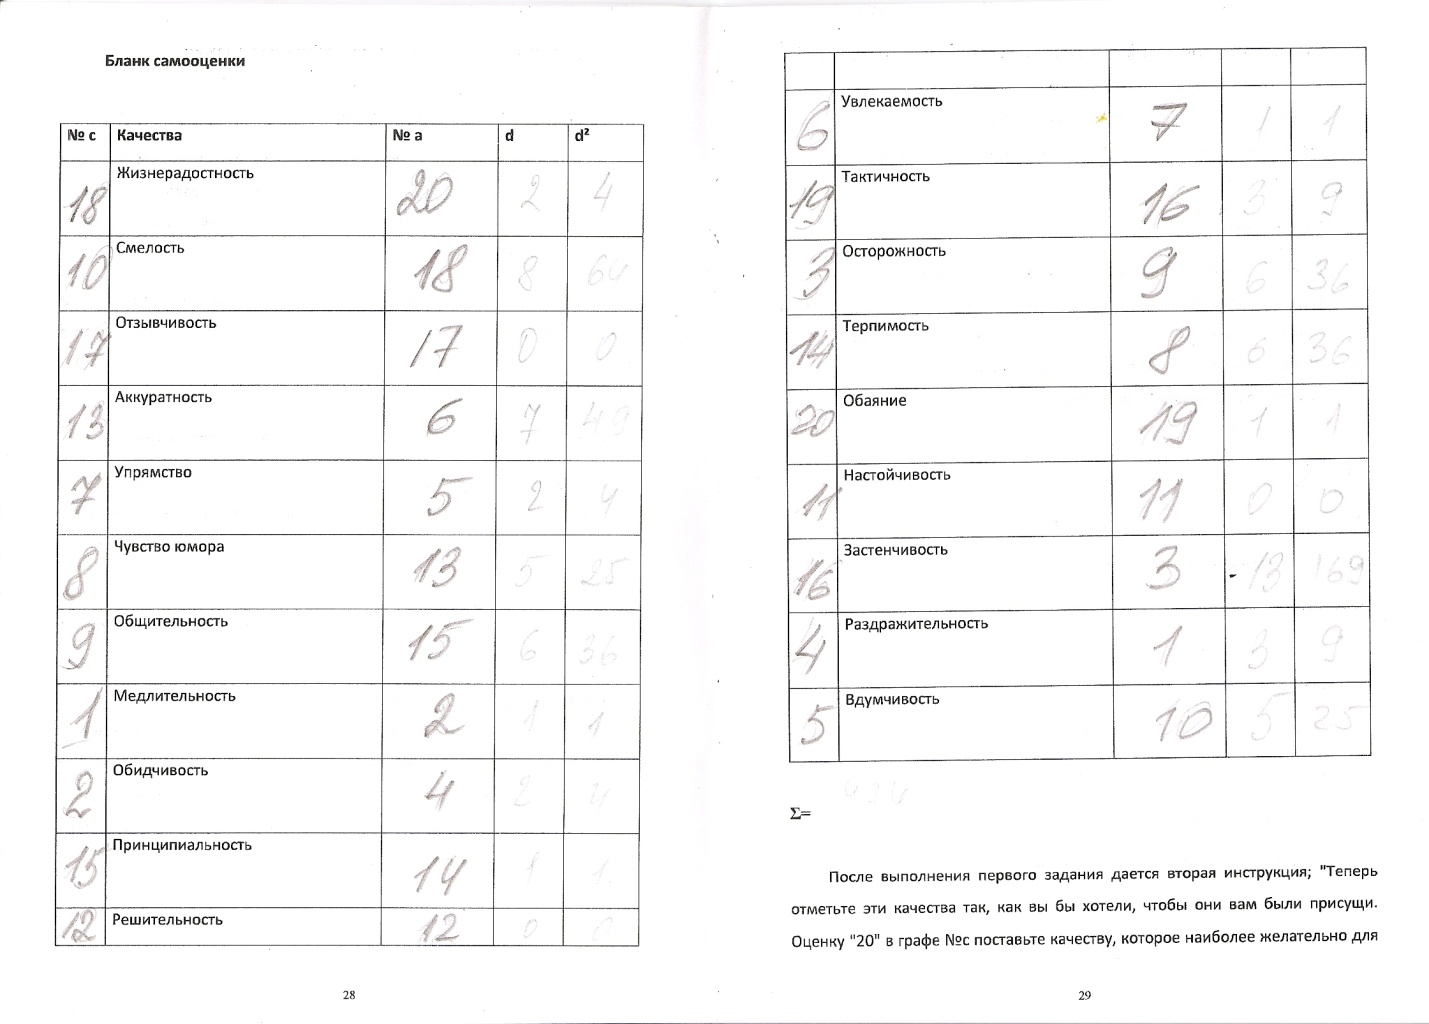 Бланк самооценки
№ с Качества № а d d²
18 Жизнерадостность 20 2 4
10 Смелость 18 8 64
17 Отзывчивость 17 0 0
13 Аккуратность 6 7 49
7 Упрямство 5 2 4
8 Чувство юмора 13 5 25
9 Общительность 15 6 36
1 Медлительность 2 1 1
2 Обидчивость 4 2 4
15 Принципиальность 14 1 1
12 Решительность 12 0 0
28
6 Увлекаемость 7 1 1
19 Тактичность 16 3 9
3 Осторожность 9 6 36
14 Терпимость 8 6 36
20 Обаяние 19 1 1
11 Настойчивость 11 0 0
16 Застенчивость 3 -13 169
4 Раздражительность 1 3 9
5 Вдумчивость 10 5 25
Σ=
После выполнения первого задания дается вторая инструкция; "Теперь
отметьте эти качества так, как вы бы хотели, чтобы они вам были присущи.
Оценку "20" в графе №с поставьте качеству, которое наиболее желательно для
29